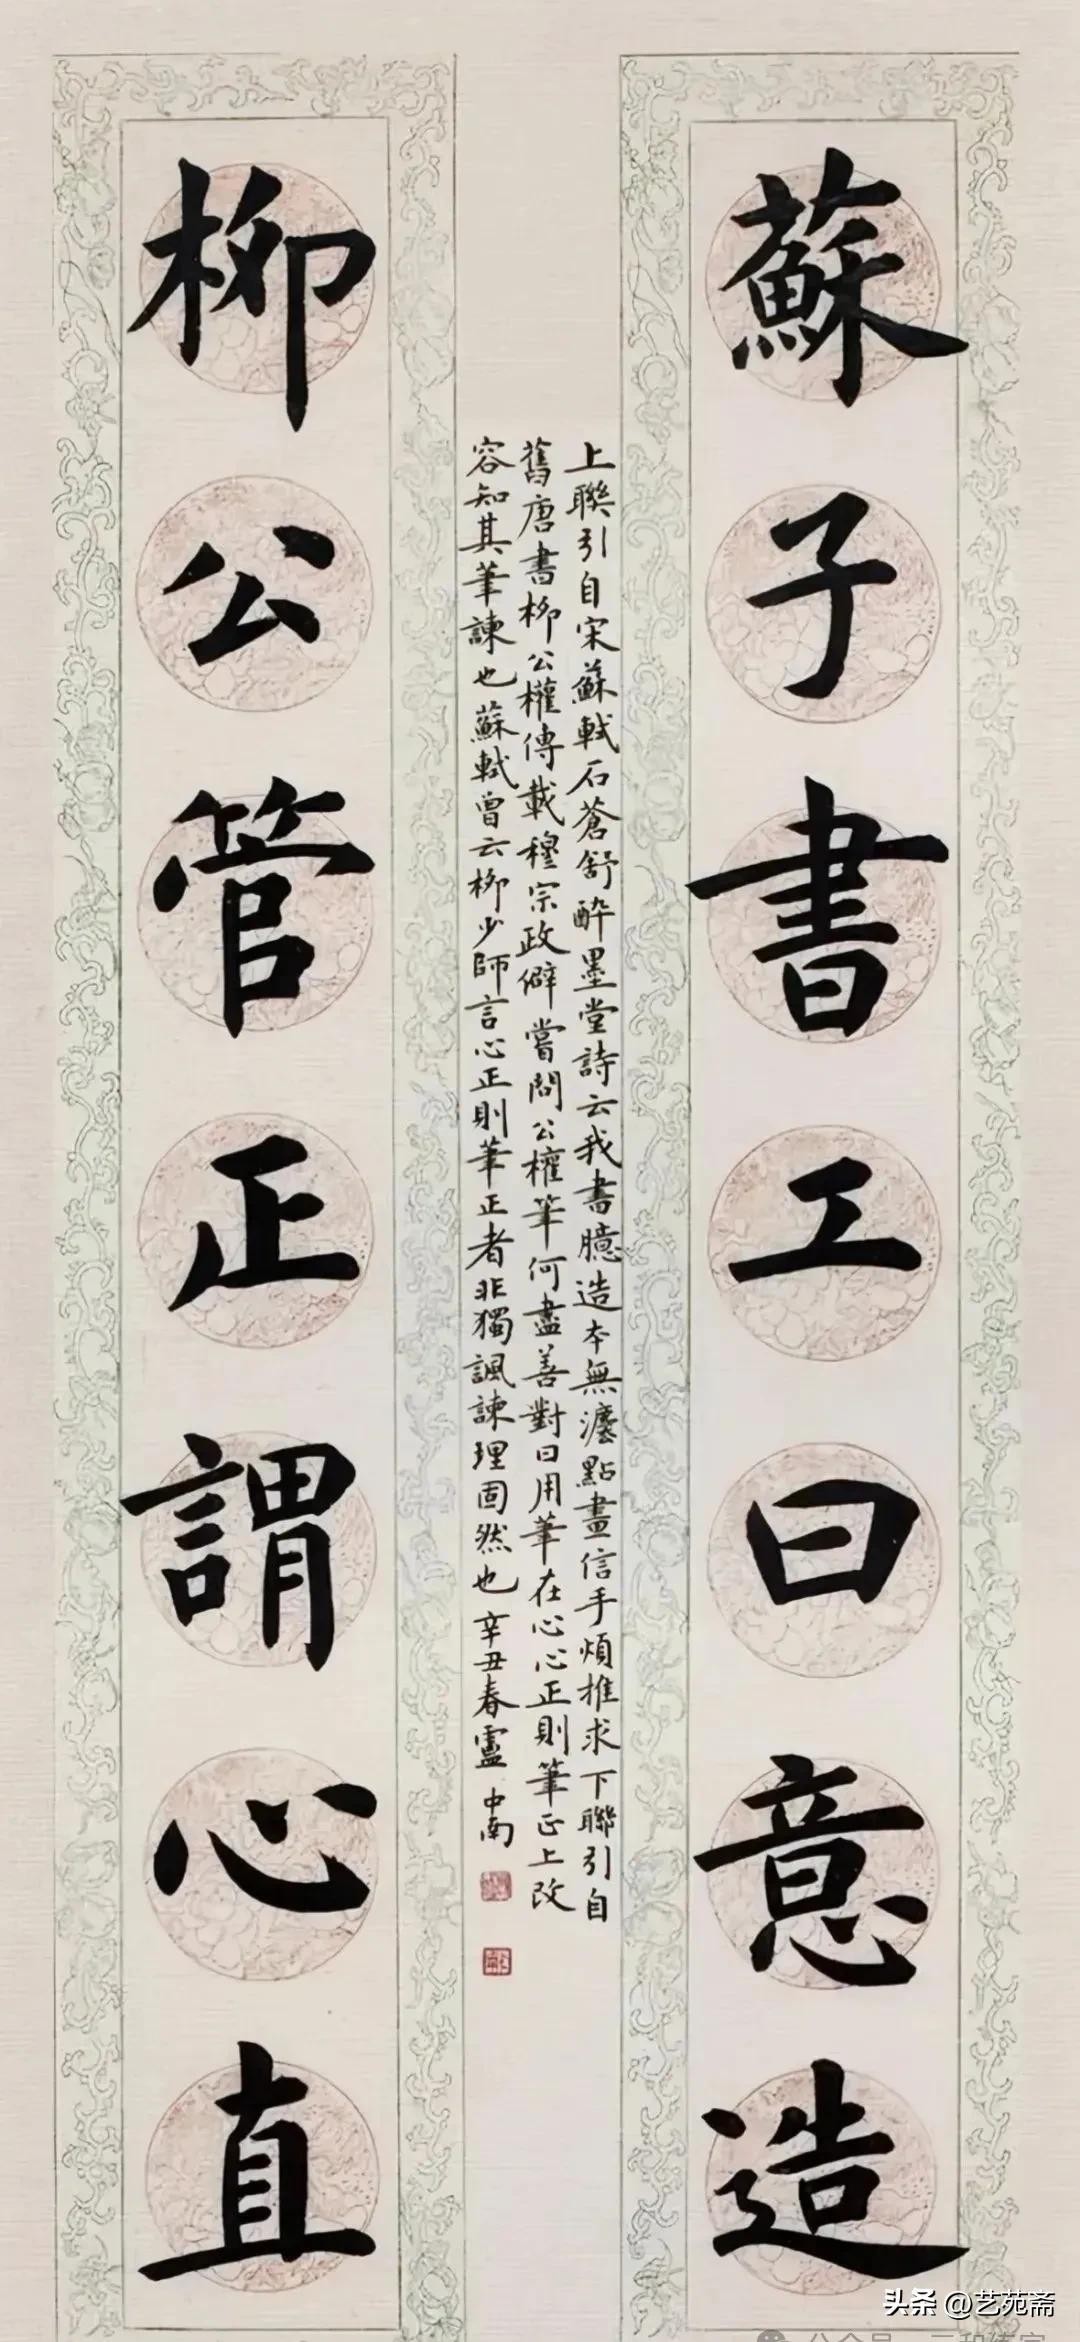 蘇子書工曰意造
柳公管正謂心直
上聯引自宋蘇軾石蒼舒醉墨堂詩云我書臆造本無灋點畫信手煩推求下聯引自
舊唐書柳公權傳載穆宗政僻嘗問公權筆何盡善對曰用筆在心心正則筆正上改
容知其筆諫也蘇軾曾云柳少師言心正則筆正者非獨諷諫理固然也辛丑春盧中南
头条 @艺苑斋